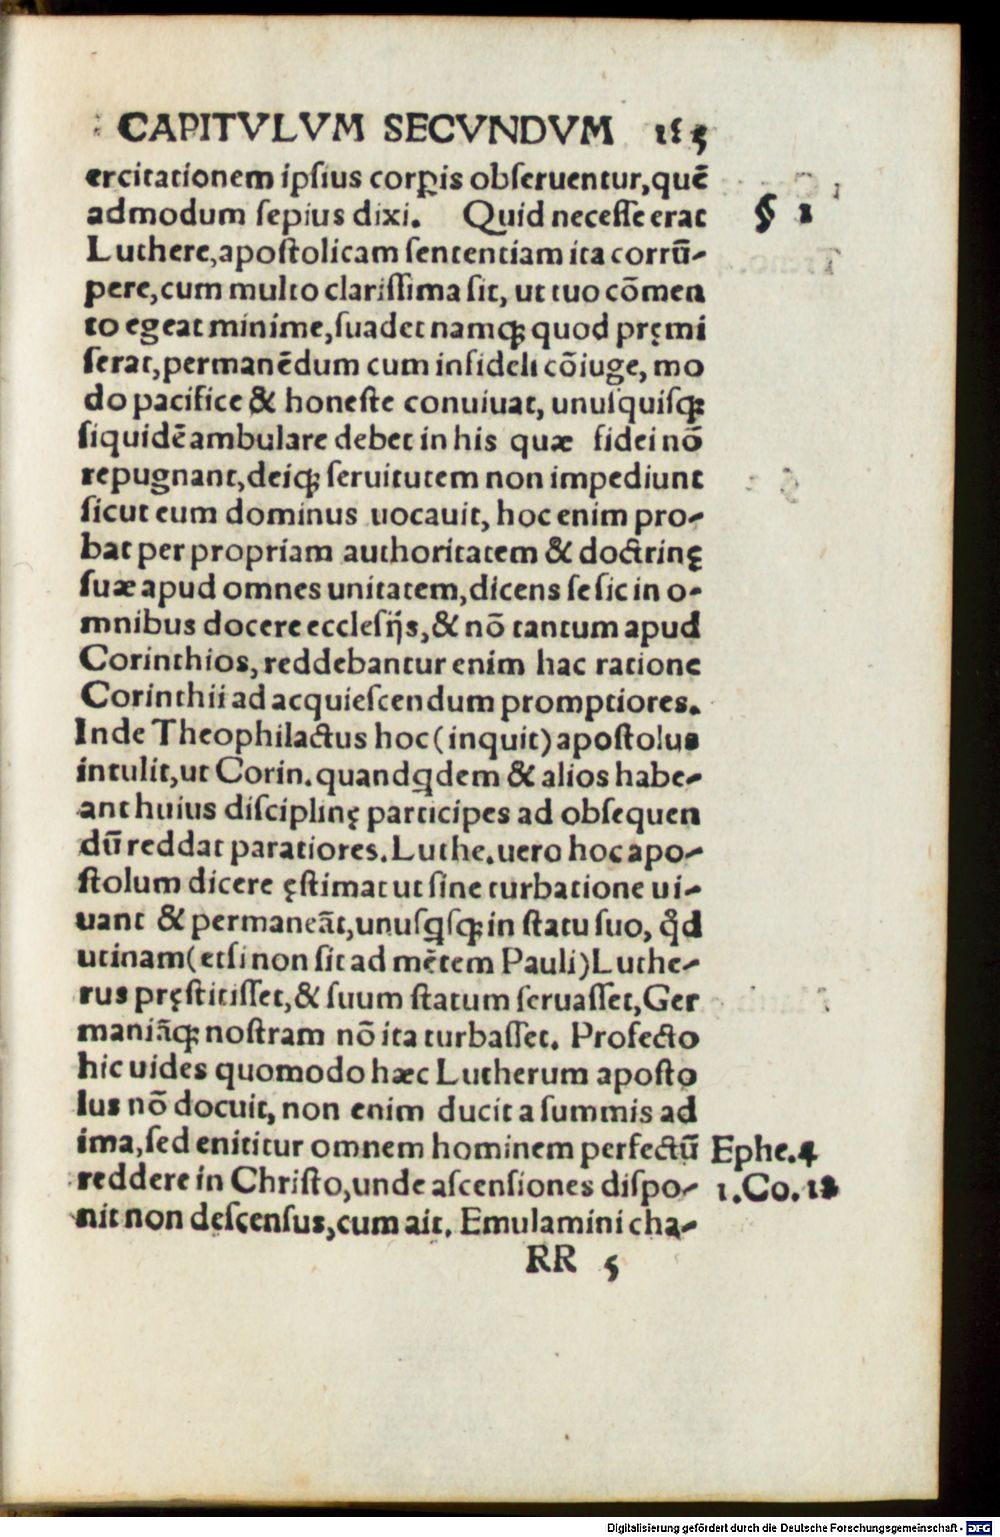 CAPITVLVM SECVNDVM 155
ercitationem ipſius corꝑis obſeruentur,quē
admodum ſepius dixi. Quid neceſſe erat § 2
Luthere,apoſtolicam ſententiam ita corrū-
pere,cum multo clariſſima ſit, ut tuo cōmen
to egeat minime,ſuadet namꝙ quod pręmi
ſerat,permanēdum cum infideli cōiuge, mo
do pacifice & honeſte conuiuat, unuſquiſꝙ
ſiquidē ambulare debet in his quæ fidei nō
repugnant,deiꝙ ſeruitutem non impediunt
ſicut eum dominus uocauit, hoc enim pro-
bat per propriam authoritatem & doctrinę
ſuæ apud omnes unitatem,dicens ſe ſic in o-
mnibus docere eccleſijs,& nō tantum apud
Corinthios, reddebantur enim hac ratione
Corinthii ad acquieſcendum promptiores.
Inde Theophilactus hoc (inquit) apoſtolus
intulit,ut Corin.quandꝗdem & alios habe-
ant huius diſciplinę participes ad obſequen
dū reddat paratiores.Luthe.uero hoc apo-
ſtolum dicere ęſtimat ut ſine turbatione ui-
uant & permaneāt,unuſꝗſꝙ in ſtatu ſuo, qđ
utinam(etſi non ſit ad mētem Pauli)Luthe-
rus pręſtitiſſet,& ſuum ſtatum ſeruaſſet,Ger
maniāꝙ noſtram nō ita turbaſſet. Profecto
hic uides quomodo hæc Lutherum apoſto
lus nō docuit, non enim ducit a ſummis ad
ima,ſed enititur omnem hominem perfectū Ephe.4
reddere in Chriſto,unde aſcenſiones diſpo- 1.Co.12
nit non deſcenſus,cum ait. Emulamini cha-
RR 5
Digitalisierung gefördert durch die Deutsche Forschungsgemeinschaft - DFG